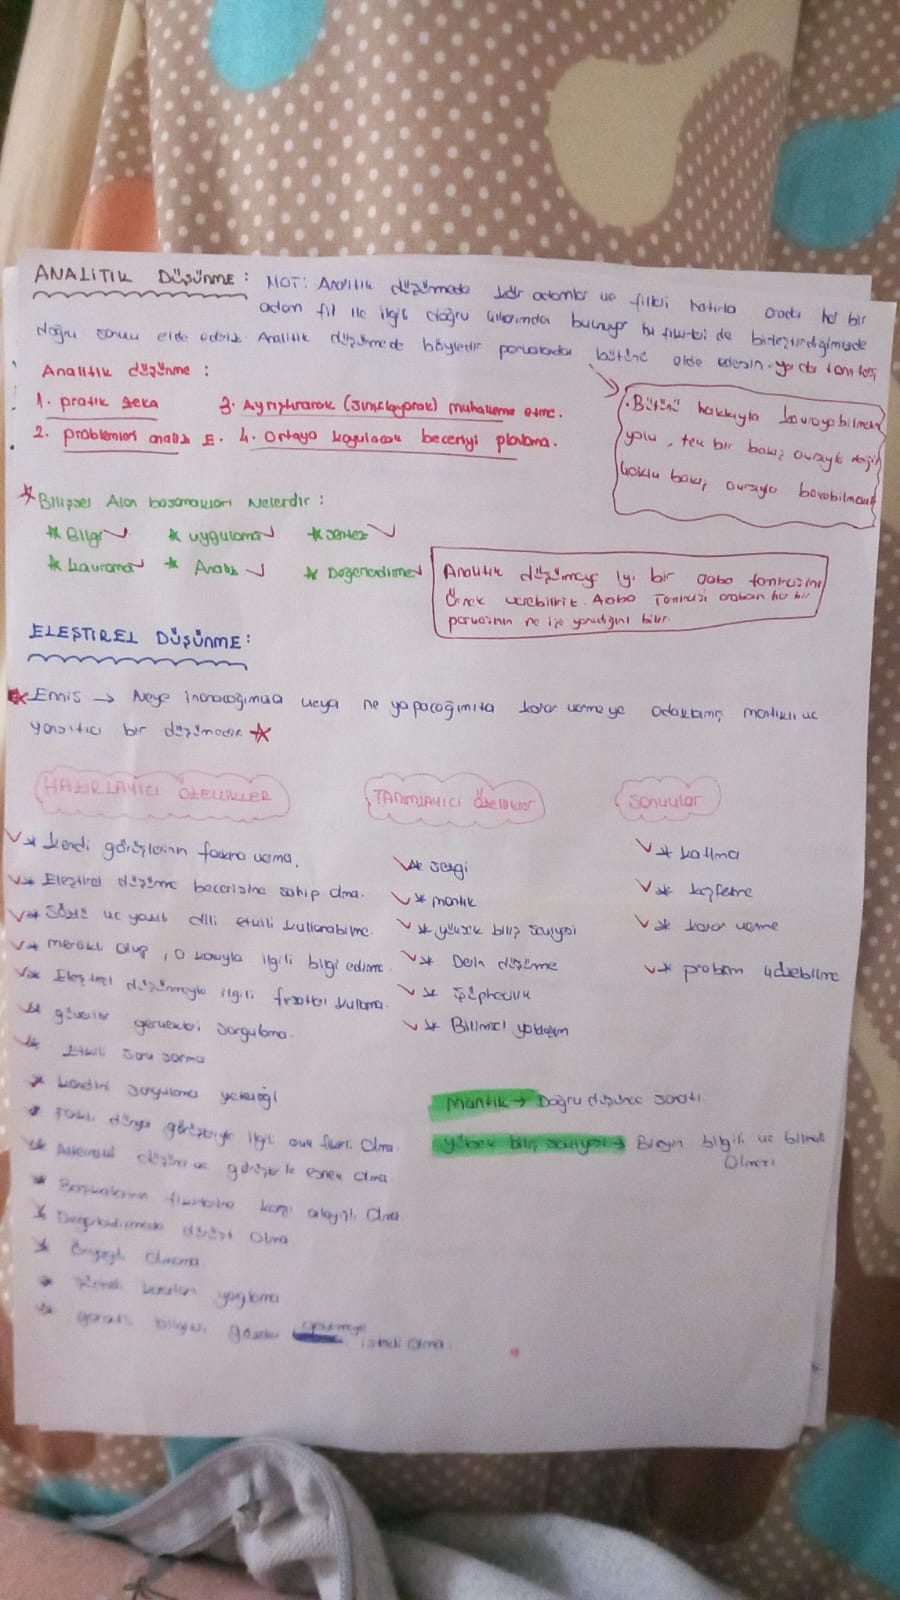 ANALİTİK DÜŞÜNME: NOT: Analitik düşünmede kör adamlar ve filleri hatırla orada her bir
adam fil ile ilgili doğru çıkarımda bulunuyor bu fikirleri de birleştirdiğimizde
doğru sonucu elde ederiz. Analitik düşünmede böyledir parçalardan bütünü elde edersin.
Analitik düşünme:
1. pratik zeka 3. Ayrıştırarak (sınıflayarak) muhakeme etme.
2. problemleri analiz E. 4. Ortaya koyulacak beceriyi planlama.
.Bütünü hakkıyla kavrayabilmenin
yolu, tek bir bakış açısıyla değil
çoklu bakış açısıyla bakabilmektir
* Bilişsel Alan basamakları Nelerdir:
* Bilgi * uygulama * sentez
* kavrama * Analiz * Değerlendirme
Analitik düşünmeye iyi bir araba tamircisini
Örnek verebiliriz. Araba Tamircisi arabanın her bir
parçasının ne işe yaradığını bilir.
ELEŞTİREL DÜŞÜNME:
* Ennis → Neye inanacağımıza veya ne yapacağımıza karar vermeye odaklanmış mantıklı ve
yansıtıcı bir düşünmedir *
HAZIRLAYICI ÖZELLİKLER
* kendi görüşlerinin farkına varma.
* Eleştirel düşünme becerisine sahip olma.
* Sözlü ve yazılı dili etkili kullanabilme.
* meraklı olup, o konuyla ilgili bilgi edinme.
* Eleştirel düşünmeyle ilgili fırsatları kullanma.
* gerçekleri sorgulama.
* Etkili soru sorma
* kendini sorgulama yeteneği
* Farklı dünya görüşleriyle ilgili açık fikirli olma.
* Alternatif düşünce ve görüşlerle esnek olma.
* Başkalarının fikirlerine karşı anlayışlı olma
* Değerlendirmede dürüst olma
* Önyargılı olmama
* kararları yargılama
* gerekli bilgiyi istekli olma.
TANIMLAYICI Özellikler
* sezgi
* mantık
* yüksek biliş seviyesi
* Derin düşünme
* Şüphecilik
* Bilimsel yaklaşım
SONUÇLAR
* katılma
* keşfetme
* karar verme
* problem çözebilme
Mantık → Doğru düşünce sanatı.
yüksek biliş seviyesi → Bireyin bilgili ve bilinçli
Olması